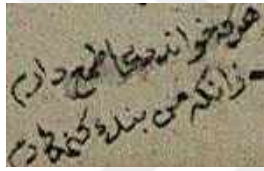 هر که خواند دعا طمع دارم
زانکه من بنده گنه کارم